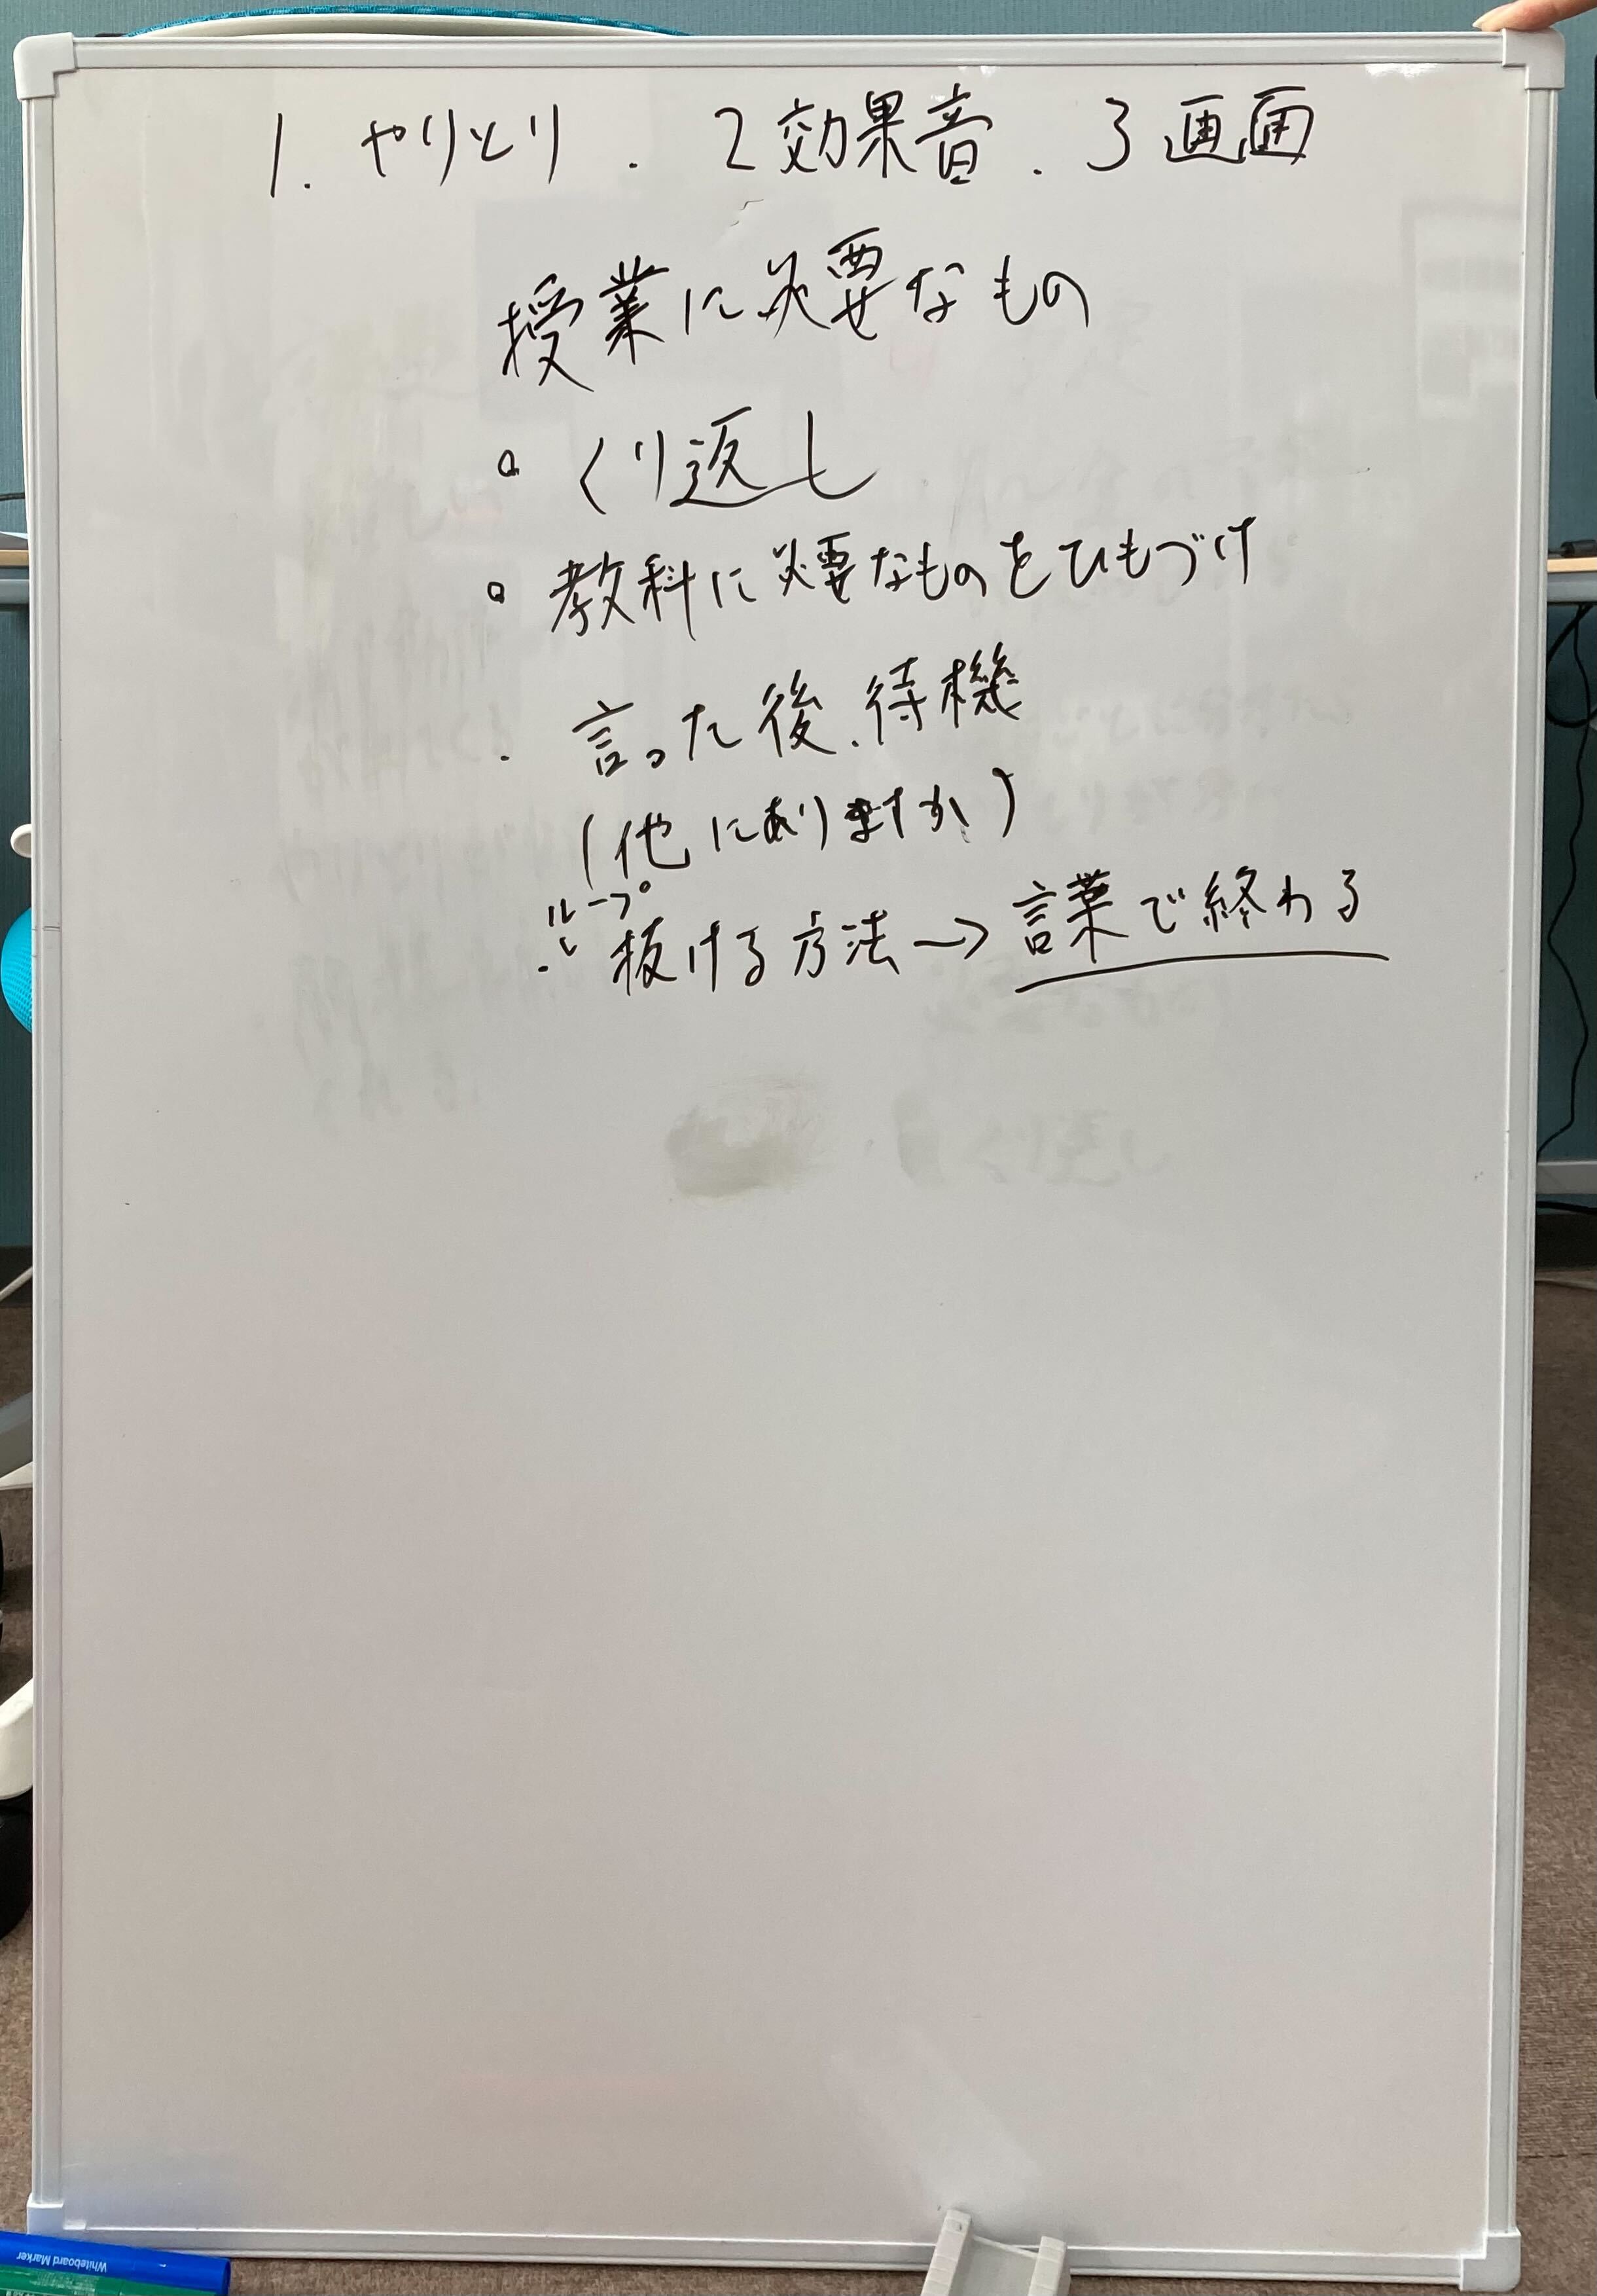 1. やりとり. 2 効果音. 3 画面
授業に必要なもの
・くり返し
・教科に必要なものをひもづけ
・言った後.待機
(他にありますか)
ループ
・抜ける方法→言葉で終わる
Whiteboard Marker